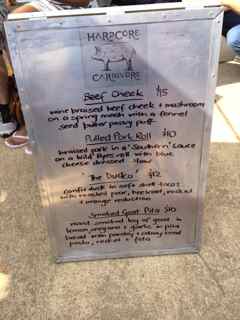 HARDCORE
CARNIVORE
Beef Cheek $15
wine braised beef cheek + mushroom
on a spring mash with a fennel
seed butter pastry puff
Pulled Pork Roll $10
braised pork in a "Southern" sauce
on a Wild Ryes roll with blue
cheese dressed slaw
"The Ducko" $12
confit duck in soft shell tacos
with roasted pear, beetroot, rocket
+ orange reduction
Smoked Goat Pita $10
roast smoked leg of goat in
lemon, oregano + garlic in pita
bread with parsley +
pesto, rocket + feta